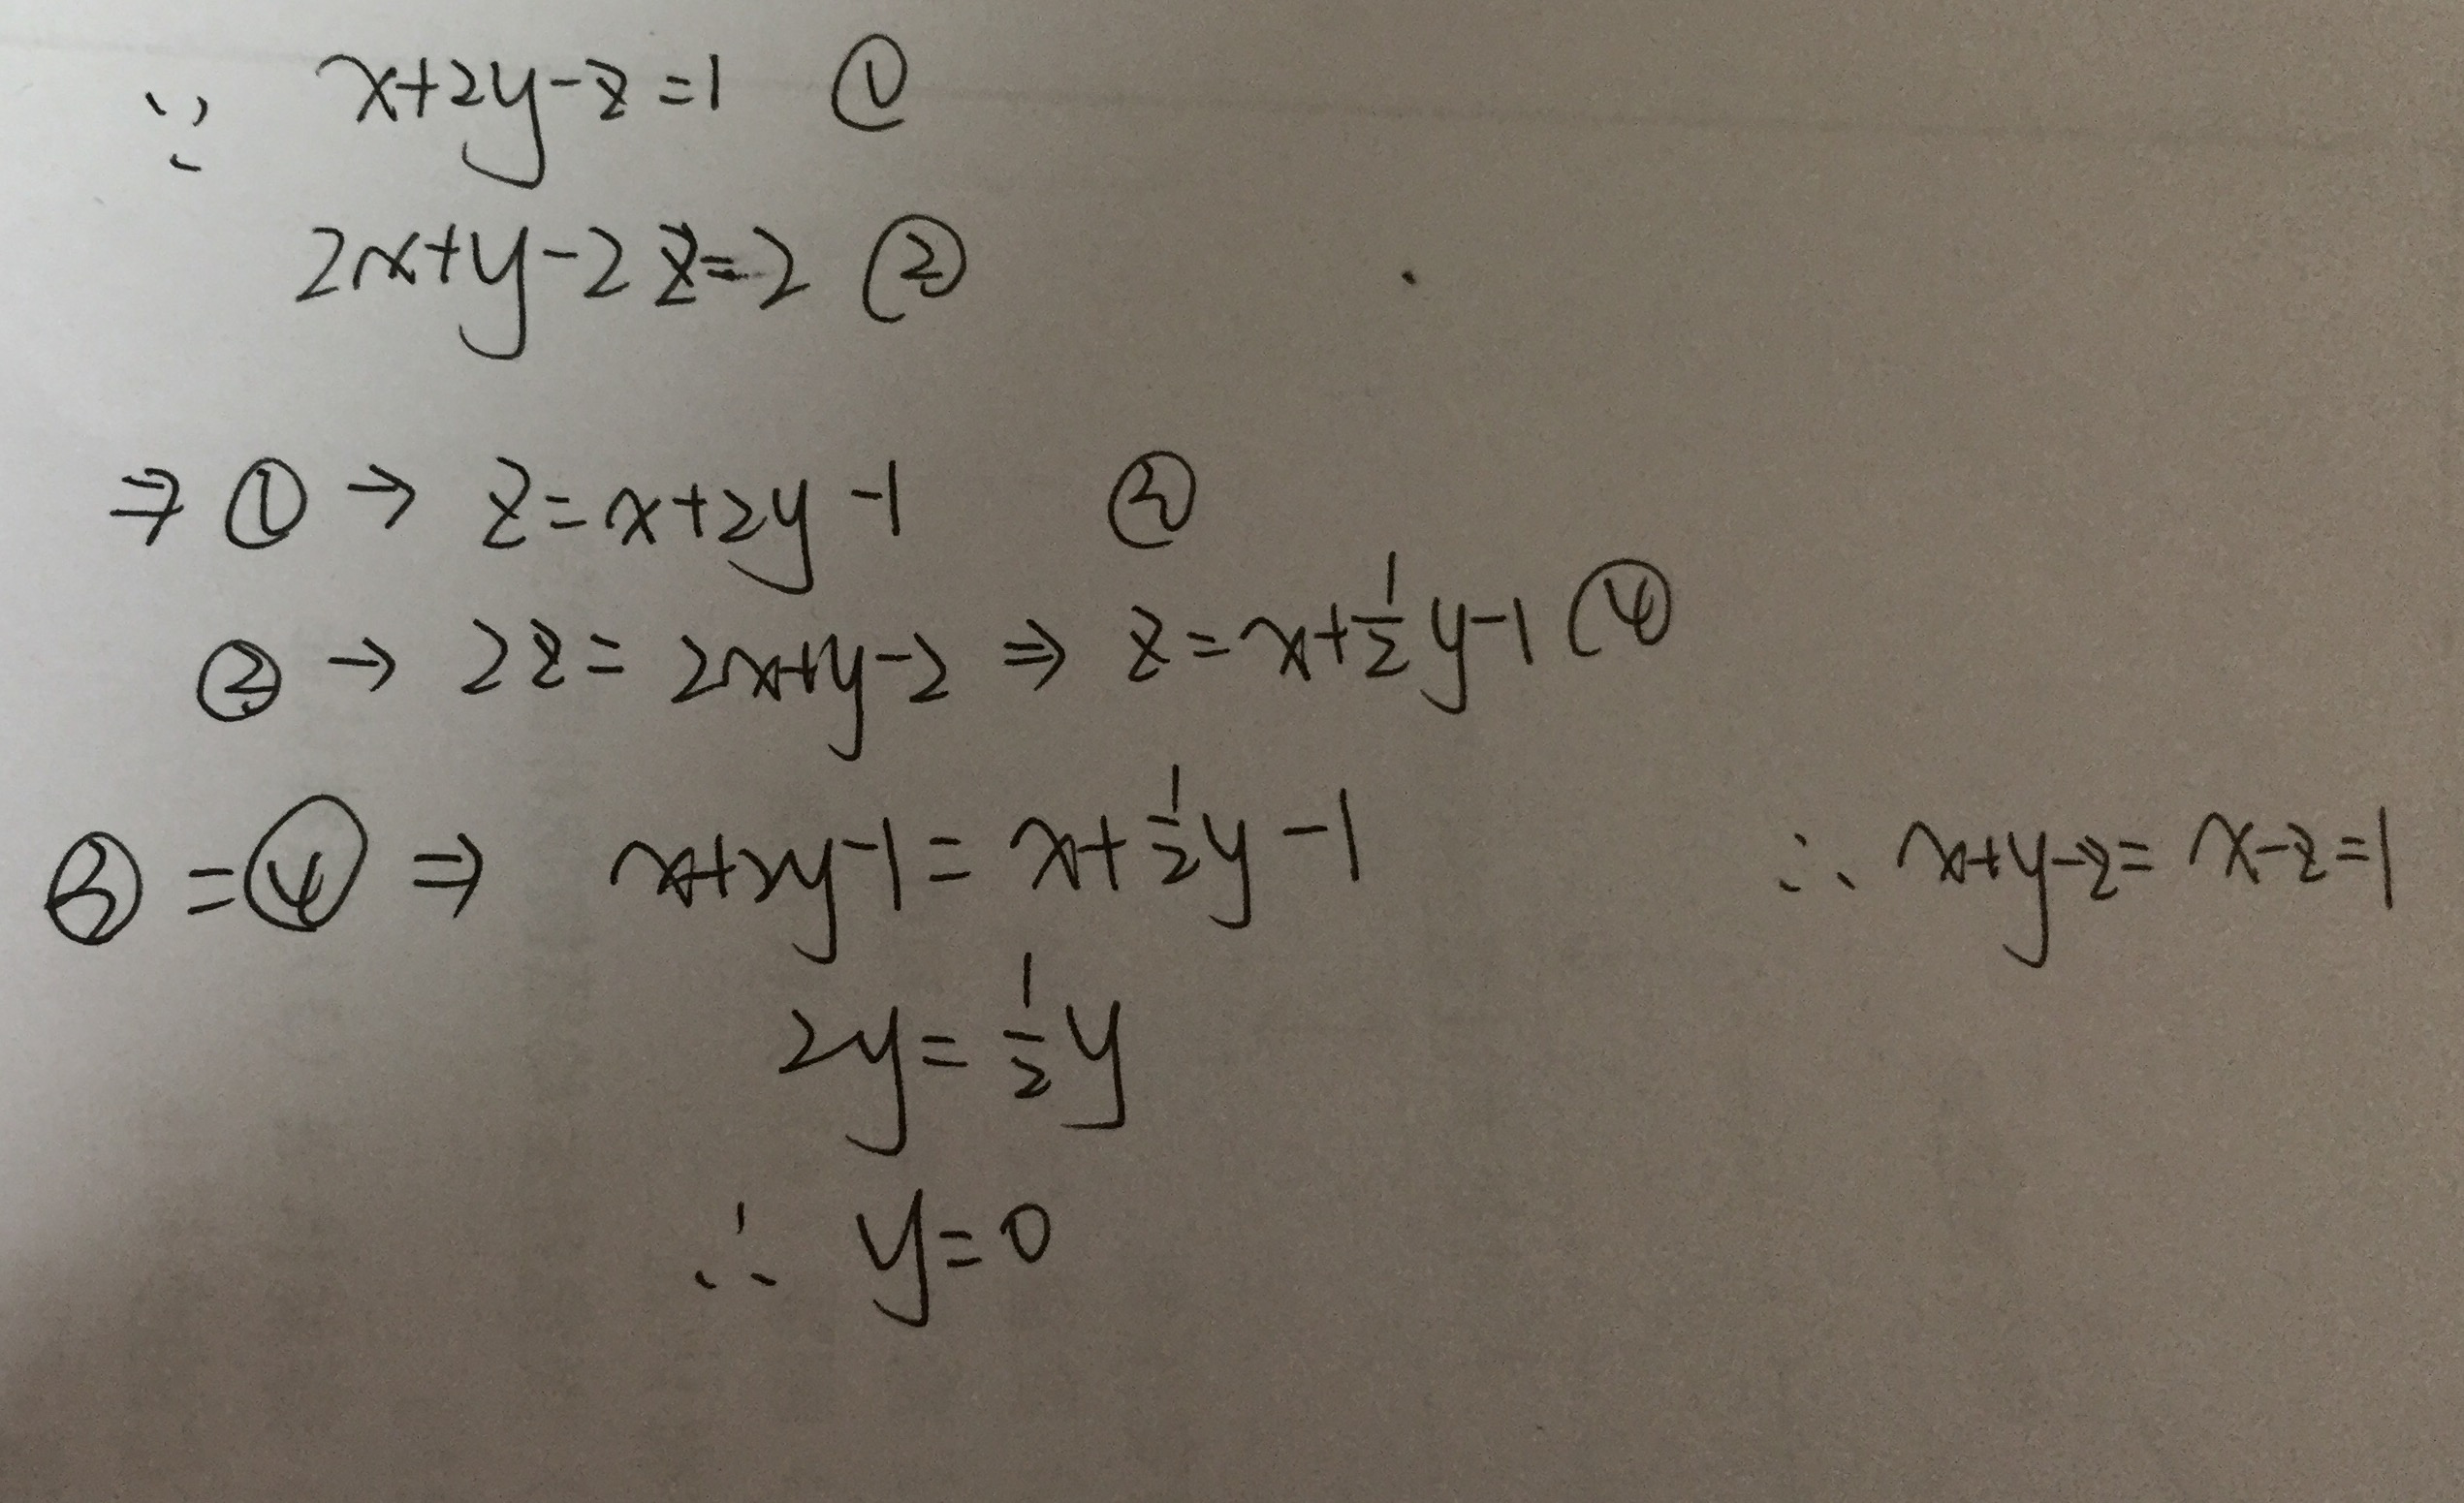 ∵ x+2y-z=1 ①
2x+y-2z=2 ②
⇒ ① → z=x+2y-1 ③
② → 2z=2x+y-2 ⇒ z=x+½y-1 ④
③=④ ⇒ x+2y-1=x+½y-1 ∴ x+y-z=x-z=1
2y=½y
∴ y=0